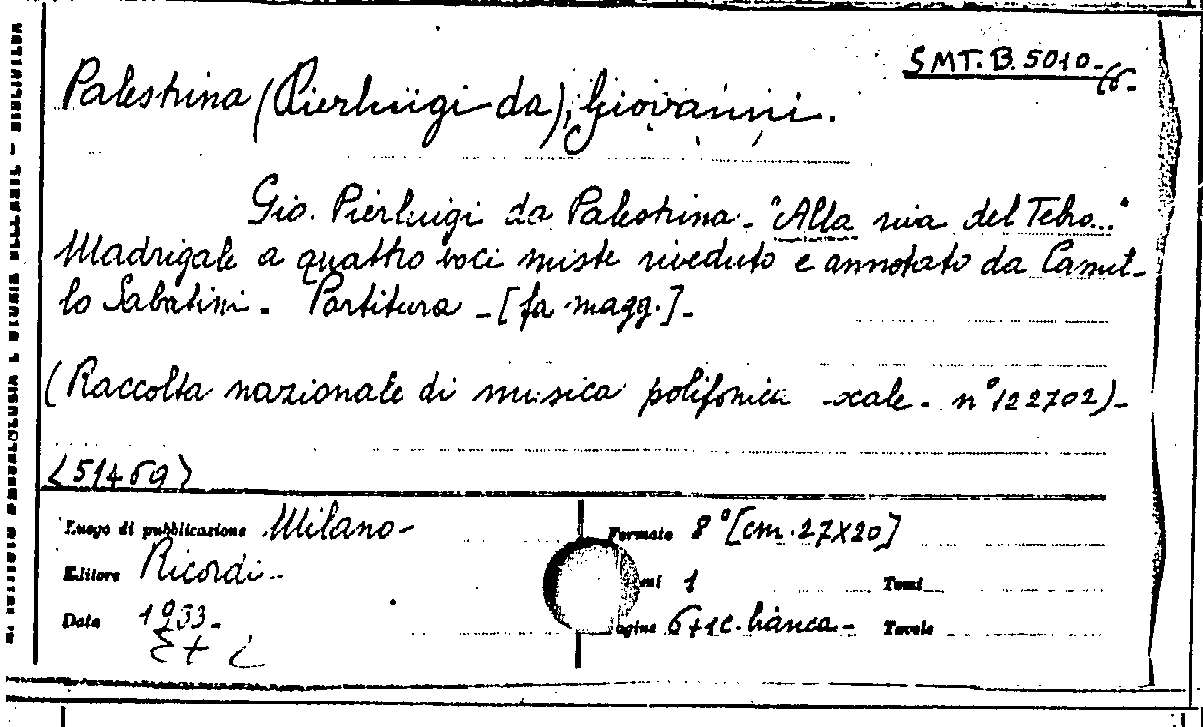 SMT. B. 5010-
Palestrina (Pierluigi da), Giovanni.
Gio. Pierluigi da Palestrina - "Alla riva del Tebro..."
Madrigale a quattro voci miste riveduto e annotato da Camil-
lo Sabatini. - Partitura - [fa magg.] -
(Raccolta nazionale di musica polifonica n° 122702) -
<51469>
Luogo di pubblicazione Milano -
Editore Ricordi. -
Data 1933. -
Formato 8° [cm. 27x20]
1 Tomi
6+1c. bianca. - Tavole